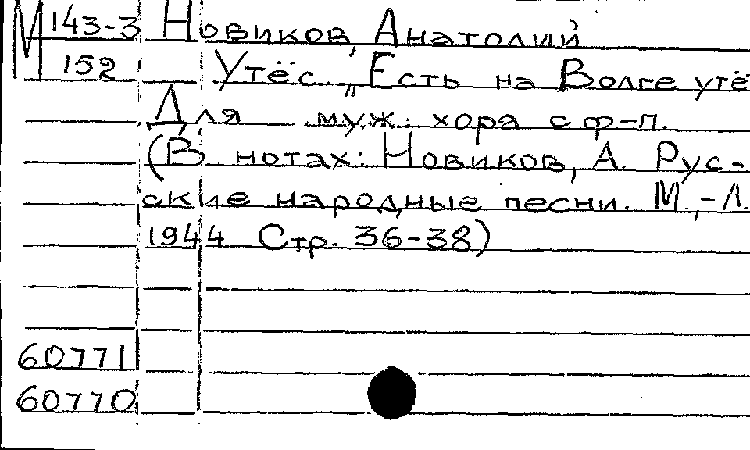 М 143-3 Новиков, Анатолий
152 Утёс. „Есть на Волге утё
Для муж. хора с ф-п.
(В нотах: Новиков, А. Рус-
ские народные песни. М.-Л.
1944 Стр. 36-38)
60771
60770